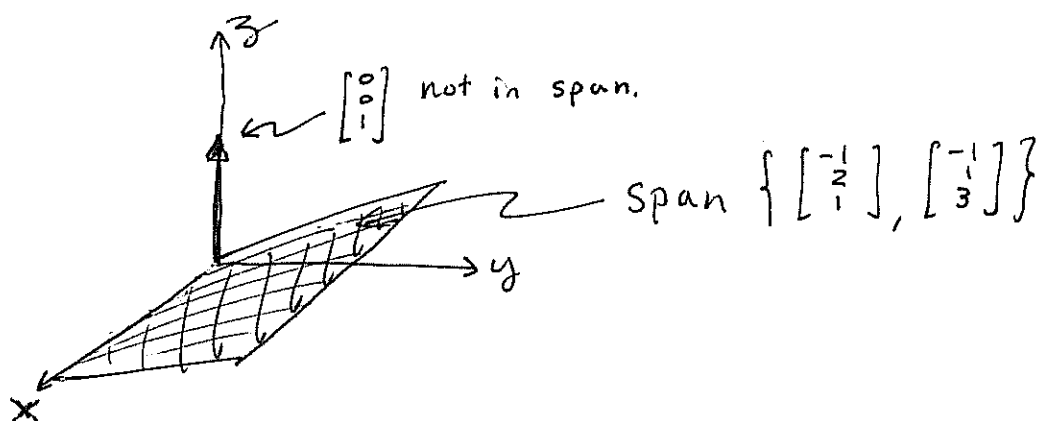 z
[0 0 1] not in span.
Span { [-1 2 1], [-1 1 3] }
y
x